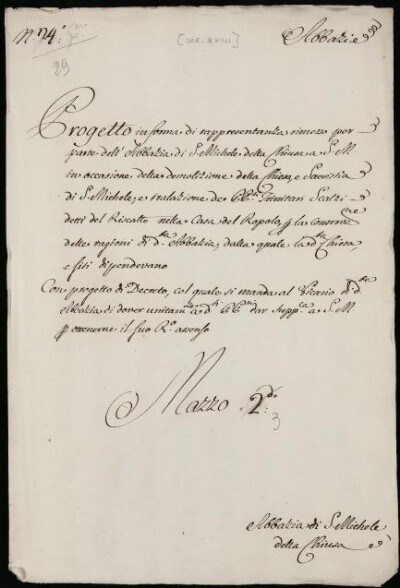 N.° 74.°
29
[sec. XVIII]
Abbazie
Progetto in forma di rappresentanza rimess per
parte dell' Abbazia di S. Michele della Chiusa a S. M.
in occasione della demolizione della Chiesa, e Sacristia
di S. Michele, e tralazione de PP. Trinitari Scalzi
detti del Riscatto nella Casa del Rapolo, p la conserv.ne
delle ragioni di d.ta Abbazia, dalla quale la d.ta Chiesa,
e siti dipendevano
Con progetto di Decreto, col quale si manda al Vicario di d.ta
Abbazia di dover unitam.te a d.ti PP. dar supp.ca a S. M.
p ottenerne il suo R.° assenso
Mazzo 2.do
3
Abbazia di S. Michele
della Chiusa